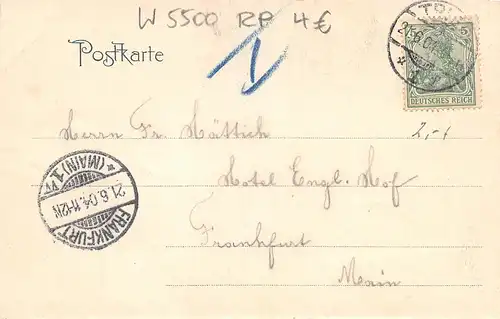 W 5500 RP 4 €
Postkarte
DEUTSCHES REICH
5
2,-
Herrn Fr. Hättich
Hotel Engl. Hof
Frankfurt
Main
FRANKFURT
(MAIN) 1.
21.6.04. 11-12N